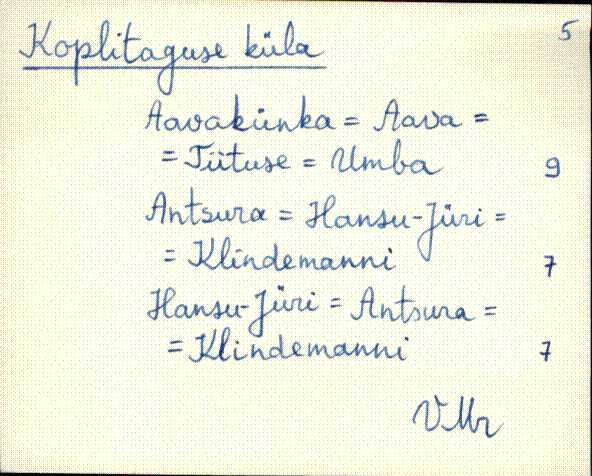 Koplitaguse küla 5
Aavakünka = Aava =
= Tiituse = Umba 9
Antsura = Hansu-Jüri =
= Klindemanni 7
Hansu-Jüri = Antsura =
= Klindemanni 7
VMr